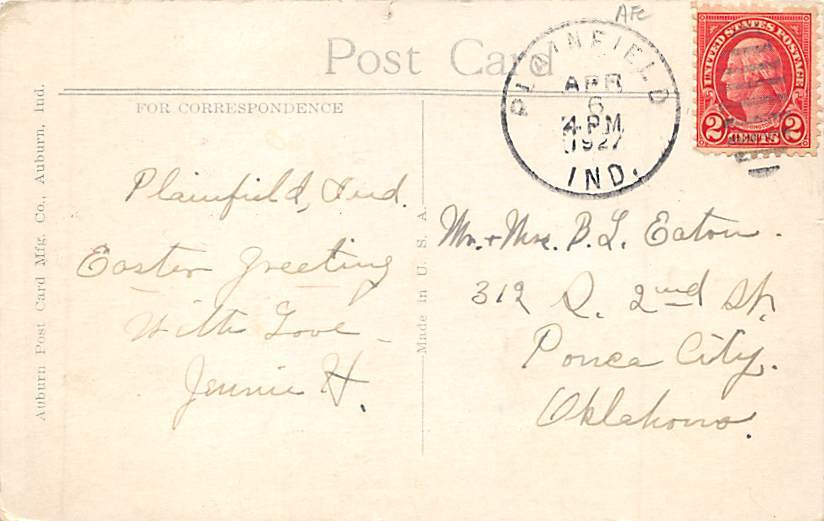 AFC
Post Card
PLAINFIELD
APR
6
4 PM
1927
IND.
UNITED STATES POSTAGE
2 CENTS 2
FOR CORRESPONDENCE
Plainfield, Ind.
Easter Greeting
With Love
Jennie H.
Mr. + Mrs. B. L. Eaton.
312 S. 2nd St.
Ponca City.
Oklahoma.
Made in U. S. A.
Auburn Post Card Mfg. Co., Auburn, Ind.